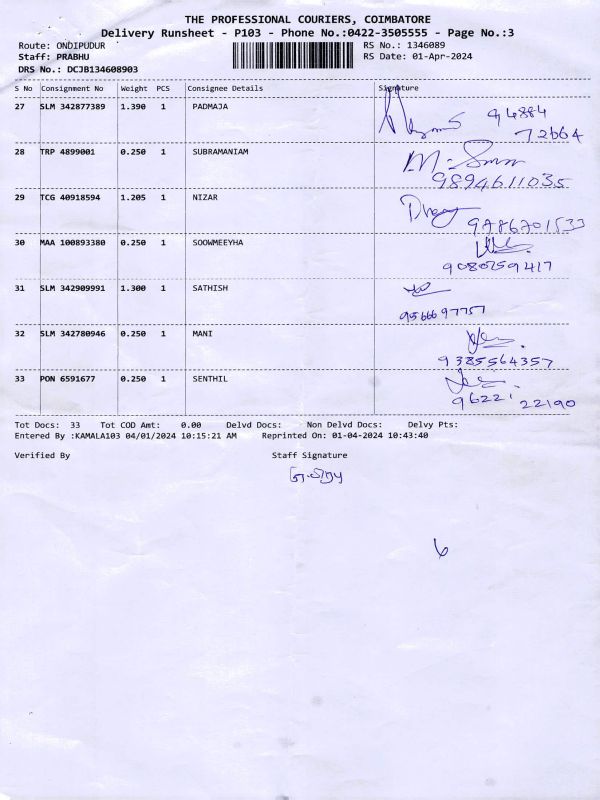 THE PROFESSIONAL COURIERS, COIMBATORE
Delivery Runsheet - P103 - Phone No.:0422-3505555 - Page No.:3
Route: ONDIPUDUR RS No.: 1346089
Staff: PRABHU RS Date: 01-Apr-2024
DRS No.: DCJB134608903
S No Consignment No Weight PCS Consignee Details Signature
27 SLM 342877389 1.390 1 PADMAJA 94884
72664
28 TRP 4899001 0.250 1 SUBRAMANIAM
9894611035
29 TCG 40918594 1.205 1 NIZAR
9786701533
30 MAA 100893380 0.250 1 SOOWMEEYHA
9080259417
31 SLM 342909991 1.300 1 SATHISH
9566697757
32 SLM 342780946 0.250 1 MANI
9385564357
33 PON 6591677 0.250 1 SENTHIL
96221 22190
Tot Docs: 33 Tot COD Amt: 0.00 Delvd Docs: Non Delvd Docs: Delvy Pts:
Entered By :KAMALA103 04/01/2024 10:15:21 AM Reprinted On: 01-04-2024 10:43:40
Verified By Staff Signature
6